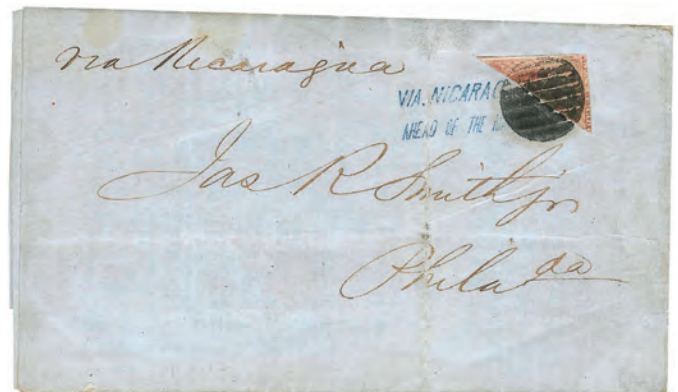 via Nicaragua
VIA. NICARA
AHEAD OF THE
Jas R Smith jr
Phila da